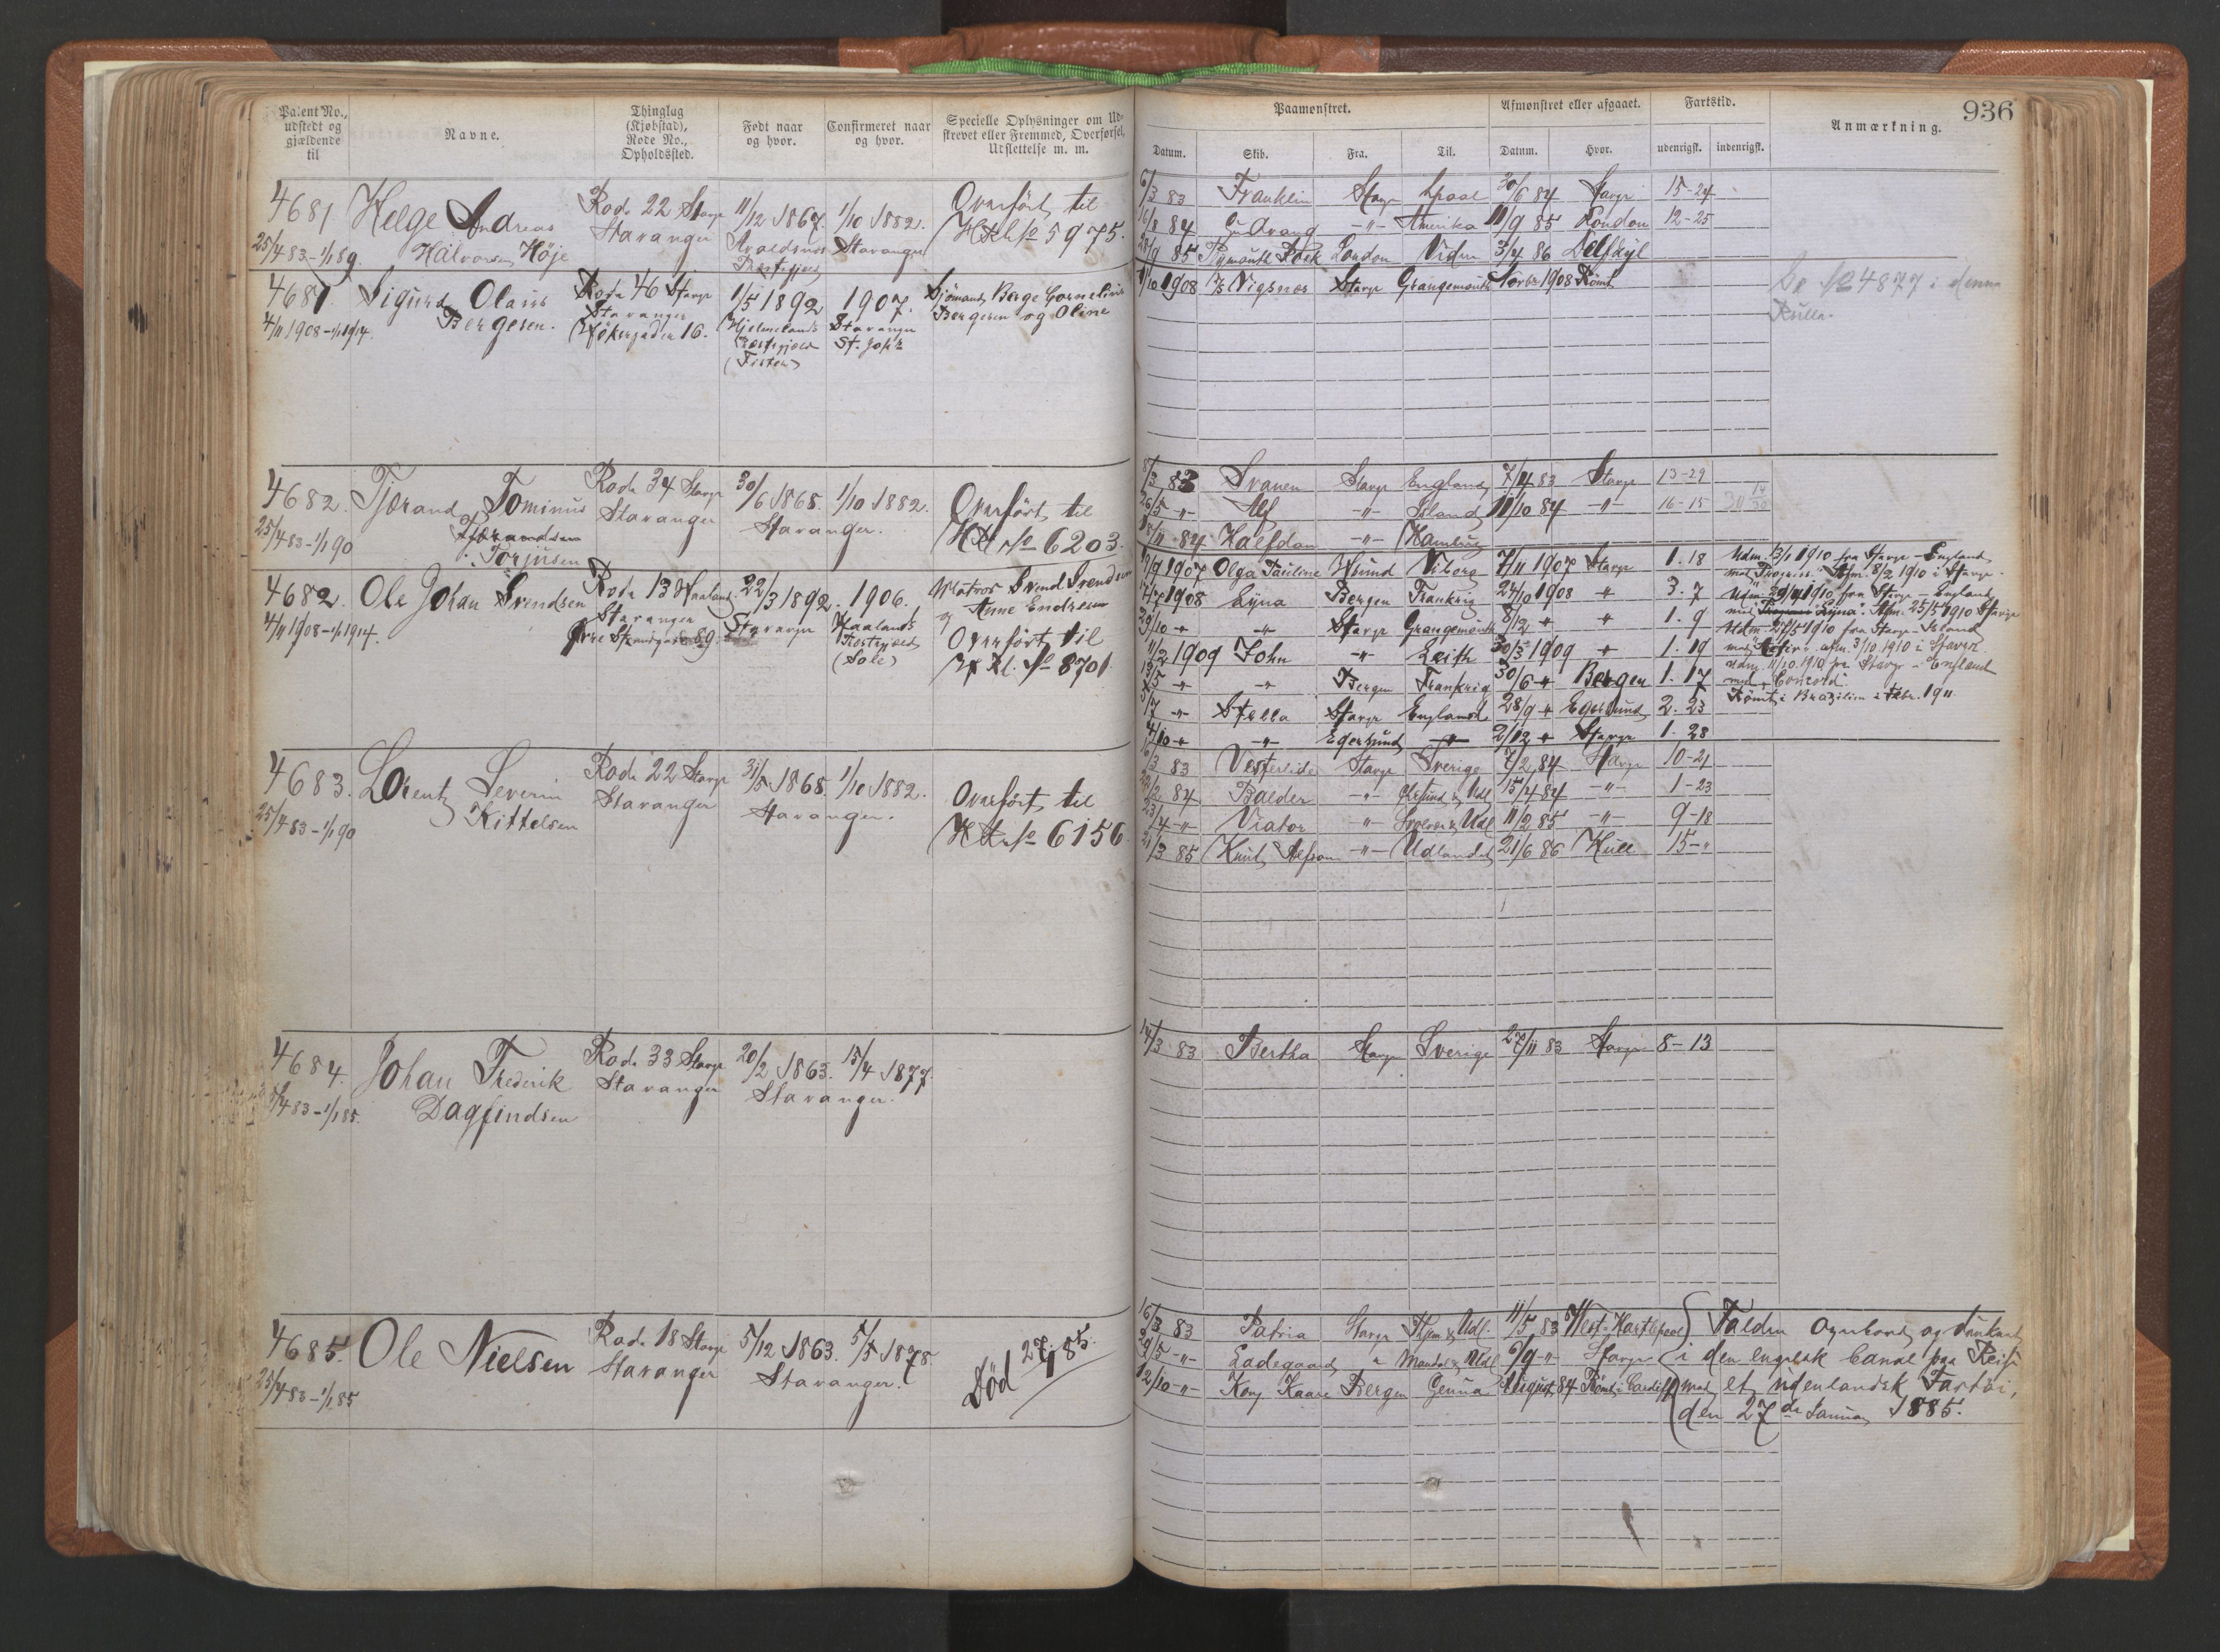 Patent No., udstedt og gjældende til
Navne.
Thinglag (Kjøbstad), Rode No., Opholdssted.
Født naar og hvor.
Confirmeret naar og hvor.
Specielle Oplysninger om Udskrevet eller Fremmed, Overførsel, Udslettelse m. m.
Paamønstret.
Afmønstret eller afgaaet.
Fartstid.
Anmærkning.
936
Datum. Skib. Fra. Til. Datum. Hvor. udenrigsk. indenrigsk.
4681 Helge Andreas Rode 22 Stavgr 11/12 1867. 1/10 1882. Overført til
25/4 83-1/1 89. Halvorsen Høje Stavanger Avaldsnes Stavanger No 5975.
Præstegjeld
6/3 83 Franklin Stavgr 30/6 84 Stavgr 15-24
84 -"- Amerika 11/9 85 London 12-25
28/9 85 Plymouth Rock London 3/4 86
4681. Sigurd Olaus Rode 46 Stavgr 1/5 1892 1907. Sjømand Berge Cornelius
4/11 1908-1/1 1914. Bergesen. Stavanger Hjelmelands Stavanger Bergesen og Oline
16. Præstegjeld St. Joh.
(Fister)
/10 1908 Vigsnes Stavgr Grangemouth Novbr 1908 Rømt
Se No 4877 i denne
Rulle.
4682. Tjørand Tominus Rode 34 Stavgr 30/6 1868. 1/10 1882. Overført til
25/4 83-1/1 90 Tjørandsen Stavanger Stavanger. No 6203.
Torjusen
8/3 83 Svanen Stavgr England 7/4 83 Stavgr 13-29
26/5 -"- Alf -"- Island 11/10 84 -"- 16-15
84 Halfdan -"- Hamburg
4682. Ole Johan Svendsen Rode 13 Haaland. 22/3 1892. 1906. Matros Svend Svendsen
4/11 1908-1/1 1914. Stavanger Stavanger Haalands og Anne Endresen
89. Præstegjeld Overført til
(Sole) No 8701
1907 Olga Pauline Viborg 7/11 1907 Stavgr 1.18
1908 Eyna Bergen Frankrig 24/10 1908 " 3.7
29/10 " -"- Stavgr Grangemouth 8/12 " " 1.9
11/2 1909 John -"- Leith 30/3 1909 " 1.19
13/5 " -"- Bergen Frankrig 30/6 " Bergen 1.17
3/7 -"- Stella Stavgr England 28/9 " Egersund 2.25
4/10 " -"- Egersund -"- 2/12 " Stavgr 1.28
Udm. 13/1 1910 fra Stavgr - England
med "Progress". Afm. 8/2 1910 i Stavgr.
Udm. 29/4 1910 fra Stavgr - England
med "Eyna". Afm. 25/5 1910 Stavgr
Udm. 27/5 1910 fra Stavgr - Island
afm. 3/10 1910 i Stavgr.
Udm. 11/10 1910 fra Stavgr - England
med "Concord".
Rømt i Brazilien i Febr. 1911.
4683. Lorentz Severin Rode 22 Stavgr 31/5 1868. 1/10 1882. Overført til
25/4 83-1/1 90 Kittelsen Stavanger Stavanger. No 6156
16/3 83 Vesterlide Stavgr Sverige 7/2 84 Stavgr 10-21
22/2 84 Balder -"- 15/4 84 -"- 1-23
23/4 -"- Viator -"- & Udl 11/2 85 -"- 9-18
21/3 85 Knut -"- Udlandet 21/6 86 Hull 15-"
4684. Johan Frederik Rode 33 Stavgr 20/2 1863. 15/4 1877.
83-1/1 85. Dagfindsen Stavanger Stavanger.
14/3 83 Bertha Stavgr Sverige 27/11 83 Stavgr 8-13
4685. Ole Nielsen Rode 18 Stavgr 5/12 1863. 5/5 1878.
25/4 83-1/1 85 Stavanger Stavanger. Død 27/1 85.
16/3 83 Patria Stavgr & Udl. 11/5 83 West-Hartlepool
29/5 -"- Ladegaard " Mandal & Udl 6/9 -"- Stavgr
12/10 -"- Kong Kaare Bergen Genua August 84 Rømt i Cardiff
Falden overbord og druknet
i den engelsk Canal paa Reise
med et udenlandsk Fartøi,
den 27de Januar 1885.